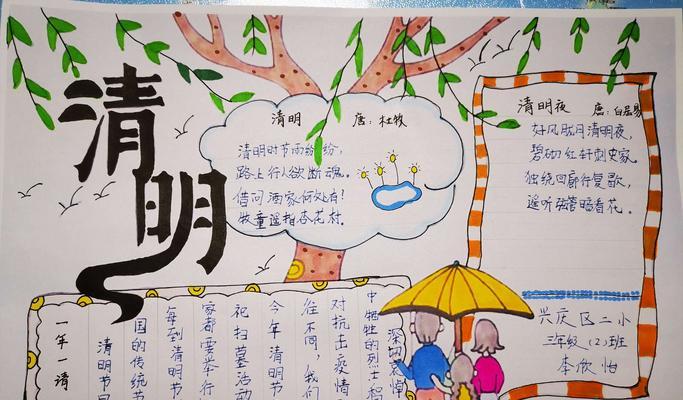 清明
清明 唐：杜牧
清明时节雨纷纷，
路上行人欲断魂。
借问酒家何处有！
牧童遥指杏花村。
清明夜 唐：白居易
好风胧月清明夜，
碧砌红轩刺史家。
独绕回廊行复歇，
遥听弦管暗看花。
兴庆区二小
三年级（2）班
李欣怡
一年一清
清明节
国的传统节
每到清明节
家都要举行
祀扫墓活动
今年清明节
往不同，我们
对抗击疫情
中牺牲的烈士
深切哀悼